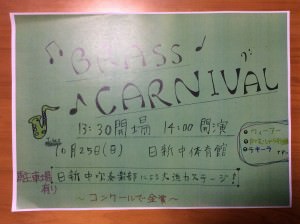 BRASS
CARNIVAL
13:30開場 14:00開演
10月25日(日) 日新中体育館
駐車場有り
日新中吹奏楽部による大迫力ステージ!
～コンクールで金賞～